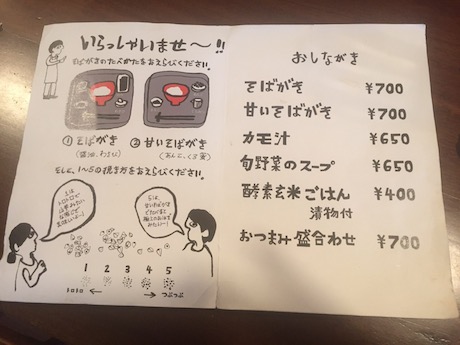 いらっしゃいませ〜!!
そばがきのたべかたをおえらびください。
①そばがき
(醤油、わさび)
②甘いそばがき
(あんこ、くろ蜜)
そして、1〜5の挽きかたをおえらびください。
1は
5は、
1 2 3 4 5
トロトロ ← → つぶつぶ
おしながき
そばがき ¥700
甘いそばがき ¥700
カモ汁 ¥650
旬野菜のスープ ¥650
酵素玄米ごはん ¥400
漬物付
おつまみ盛合わせ ¥700